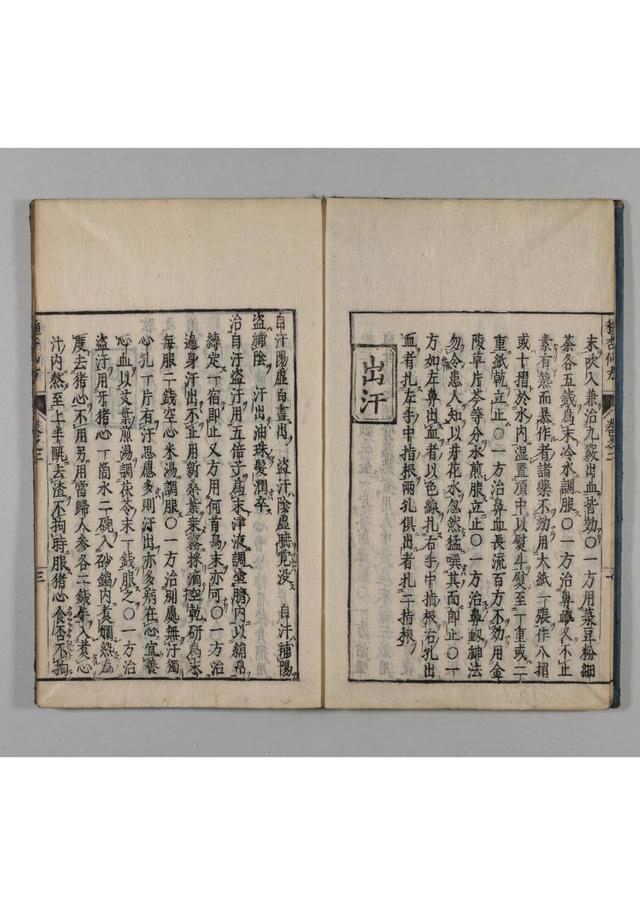 末吹入兼治九竅出血皆効〇一方用菉豆粉細
茶各五錢爲末冷水調服〇一方治鼻衂久不止
素有熱而暴作者諸藥不効用大紙一張作八摺
或十摺於水内濕置頂中以熨斗熨至一重或二
重紙乾立止〇一方治鼻血長流百方不効用金
陵草片芩等分水煎服立止〇一方治鼻衂神法
勿令患人知以井花水忽然猛噀其面即止〇一
方如左鼻出者以色線扎右手中指根右孔出
血者扎左手中指根兩孔俱出者扎二指根
出汗
自汗陽虛白晝出 盜汗陰虛睡覺没 自汗補陽
盜補陰 汗出油珠髮潤卒
治自汗盜汗用五倍子爲末津液調塗臍内以綿帛
縛定一宿即止又方用何首烏末亦可〇一方治
遍身汗出不止用新桑葉乘霧採滴空乾研爲末
每服二錢空心米湯調服〇一方治別處無汗獨
心孔一片有汗思慮多則汗出亦多病在心宜養
心血以艾葉煎湯調茯苓末一錢服之〇一方治
盜汗用牙猪心一箇水二碗入砂鍋内煑爛熟爲
度去猪心不用另用當歸人參各二錢半入煑心
汁内熬至上半甌去渣不拘時服猪心食否不拘
卷之二
卷之二
三